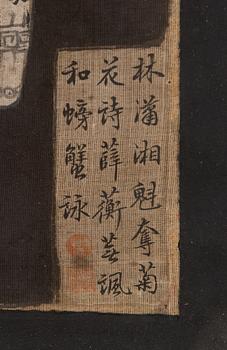 林瀟湘魁奪菊
花詩薛蘅蕪諷
和螃蟹詠